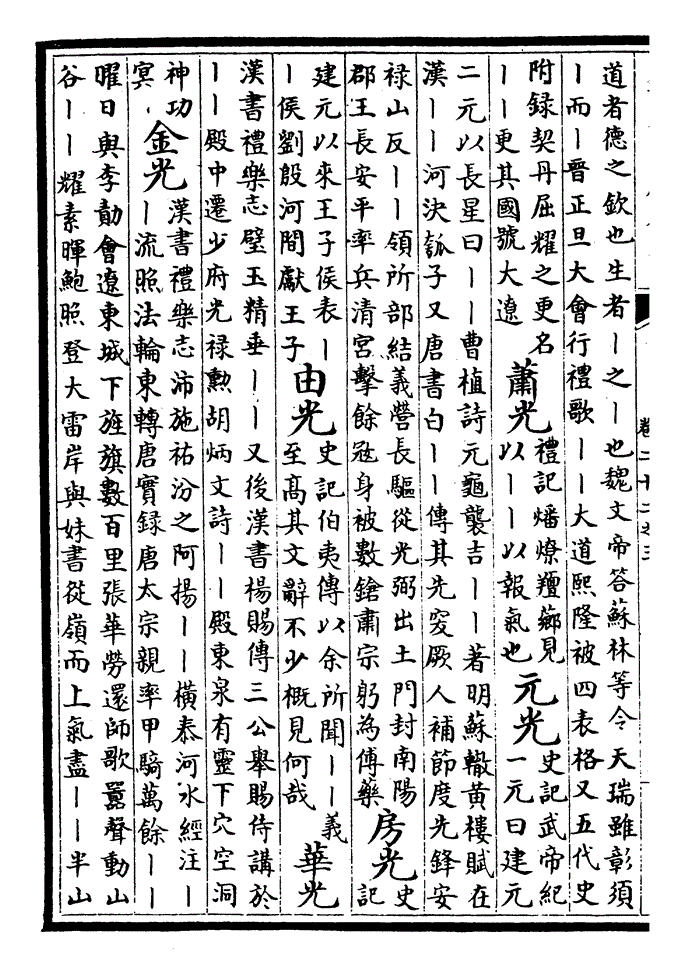 道者德之欽也生者丨之丨也魏文帝答蘇林等令天瑞雖彰須
丨而丨晋正旦大會行禮歌丨丨大道熙隆被四表格又五代史
附録契丹屈耀之更名
丨丨更其國號大遼
蕭光
禮記燔燎羶薌見
以丨丨以報氣也
元光
史記武帝紀
一元曰建元
二元以長星曰丨丨曹植詩元龜襲吉丨丨著明蘇轍黄樓賦在
漢丨丨河決瓠子又唐書白丨丨傳其先突厥人補節度先鋒安
禄山反丨丨領所部結義營長驅從光弼出土門封南陽
郡王長安平率兵清宮擊餘冦身被數鎗肅宗躬為傅藥
房光
史
記
建元以來王子侯表丨
丨侯劉殷河間獻王子
由光
史記伯夷傳以余所聞丨丨義
至高其文辭不少概見何哉
華光
漢書禮樂志璧玉精垂丨丨又後漢書楊賜傳三公舉賜侍講於
丨丨殿中遷少府光禄勲胡炳文詩丨丨殿東泉有靈下穴空洞
神功
冥
金光
漢書禮樂志沛施祐汾之阿揚丨丨横泰河水經注丨
丨流照法輪東轉唐實録唐太宗親率甲騎萬餘丨丨
曜日與李勣會遼東城下旌旗數百里張華勞還師歌囂聲動山
谷丨丨耀素暉鮑照登大雷岸與妹書從嶺而上氣盡丨丨半山